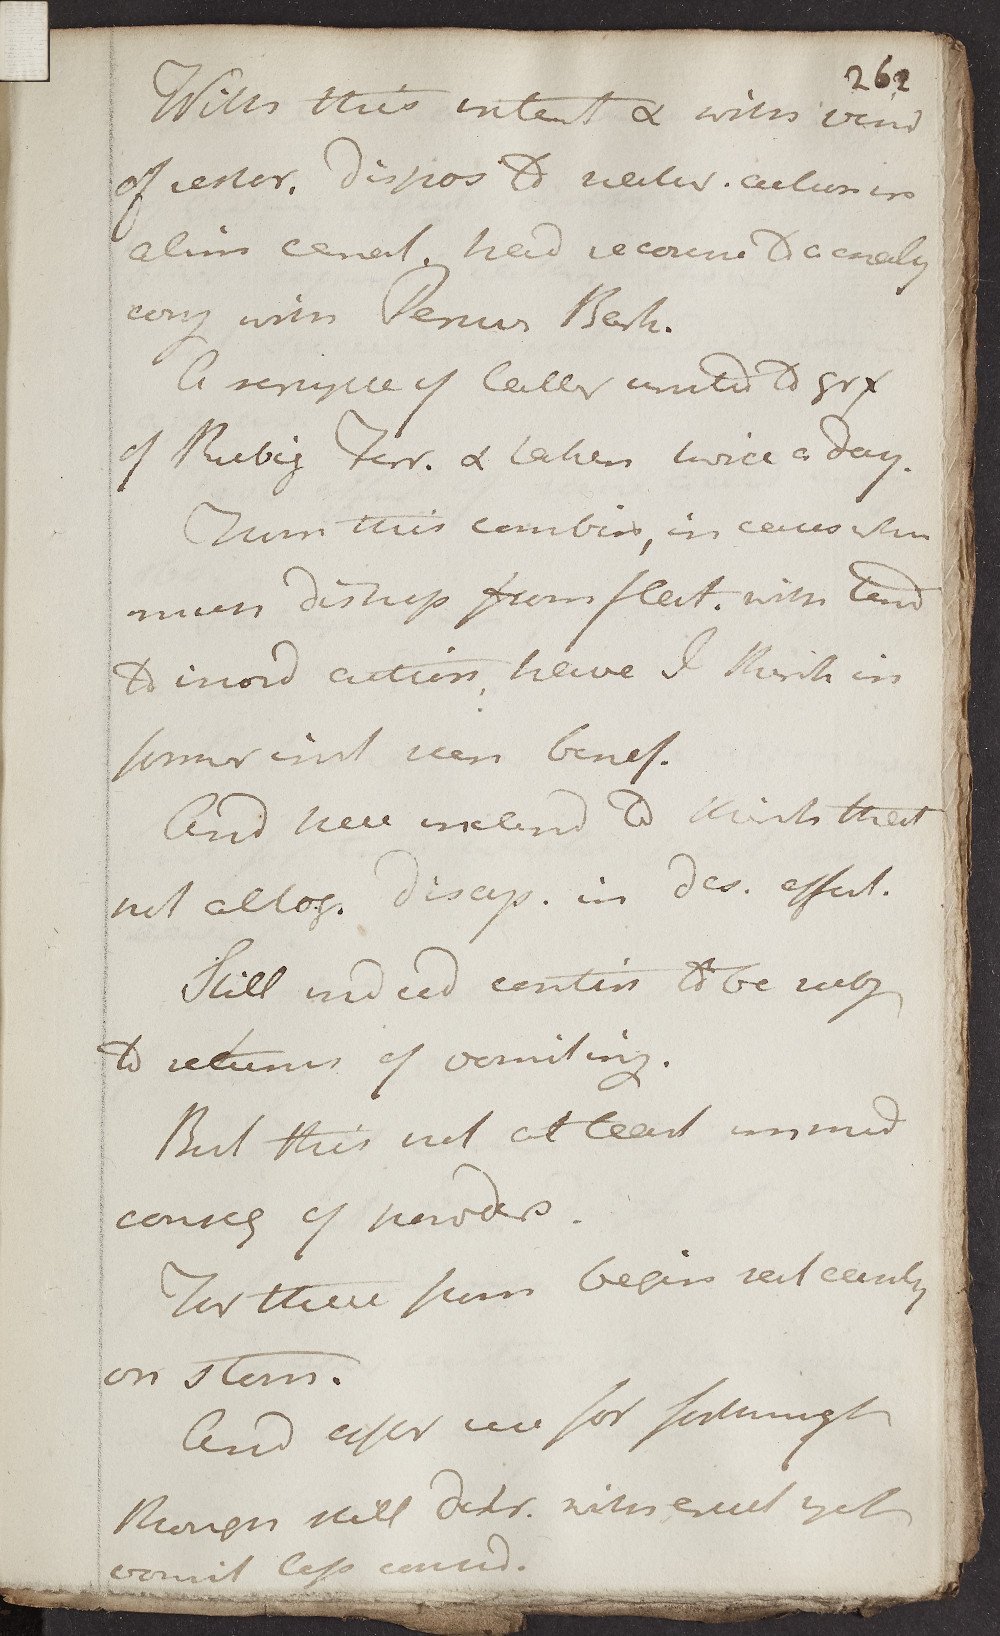 262
With this intent & with view
of restor. dispos to natur. action in
alim canal. had recourse to a
with Peruv Bark.
A scruple of latter united to gr x
of Rubig Ferr. & taken twice a day.
From this combin, in cases when
much distress from flat. with tend
to inord action, have I think in
former inst seen benef.
And here inclind to think that
not altog. disap. in des. effect.
Still indeed contin to be subj
to returns of vomiting.
But this not at least immed
conseq of powders.
For these from begin sat easily
on stom.
And after use for fortnight
though still distr. with yet
vomit less